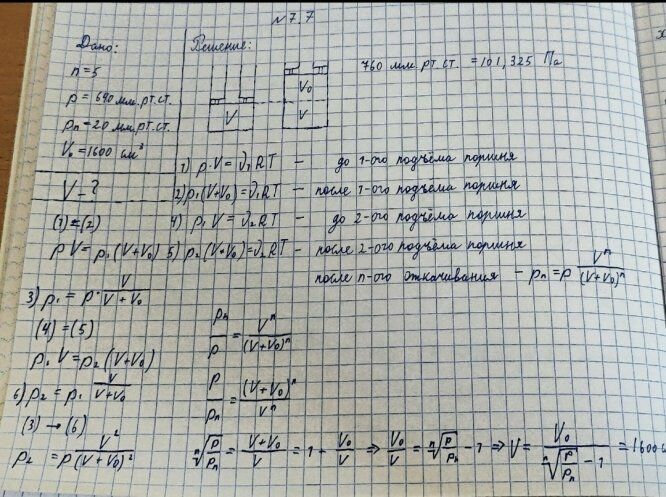 №7.7
Дано:
n=5
p=640 мм.рт.ст.
pₙ=20 мм.рт.ст.
V₀=1600 см³
V-?
Решение:
V
V₀
V
760 мм рт.ст. =101,325 Па
1) p·V=ν₁RT — до 1-ого подъёма поршня
2) p₁(V+V₀)=ν₁RT — после 1-ого подъёма поршня
4) p₁V=ν₂RT — до 2-ого подъёма поршня
5) p₂(V+V₀)=ν₂RT — после 2-ого подъёма поршня
после n-ого откачивания — pₙ=p Vⁿ/(V+V₀)ⁿ
(1)=(2)
pV=p₁(V+V₀)
3) p₁=p·V/(V+V₀)
(4)=(5)
p₁V=p₂(V+V₀)
6) p₂=p₁ V/(V+V₀)
(3)→(6)
p₂=p V²/(V+V₀)²
pₙ/p=Vⁿ/(V+V₀)ⁿ
p/pₙ=(V+V₀)ⁿ/Vⁿ
ⁿ√(p/pₙ)=(V+V₀)/V=1+V₀/V⇒V₀/V=ⁿ√(p/pₙ)-1⇒V=V₀/(ⁿ√(p/pₙ)-1)=1600